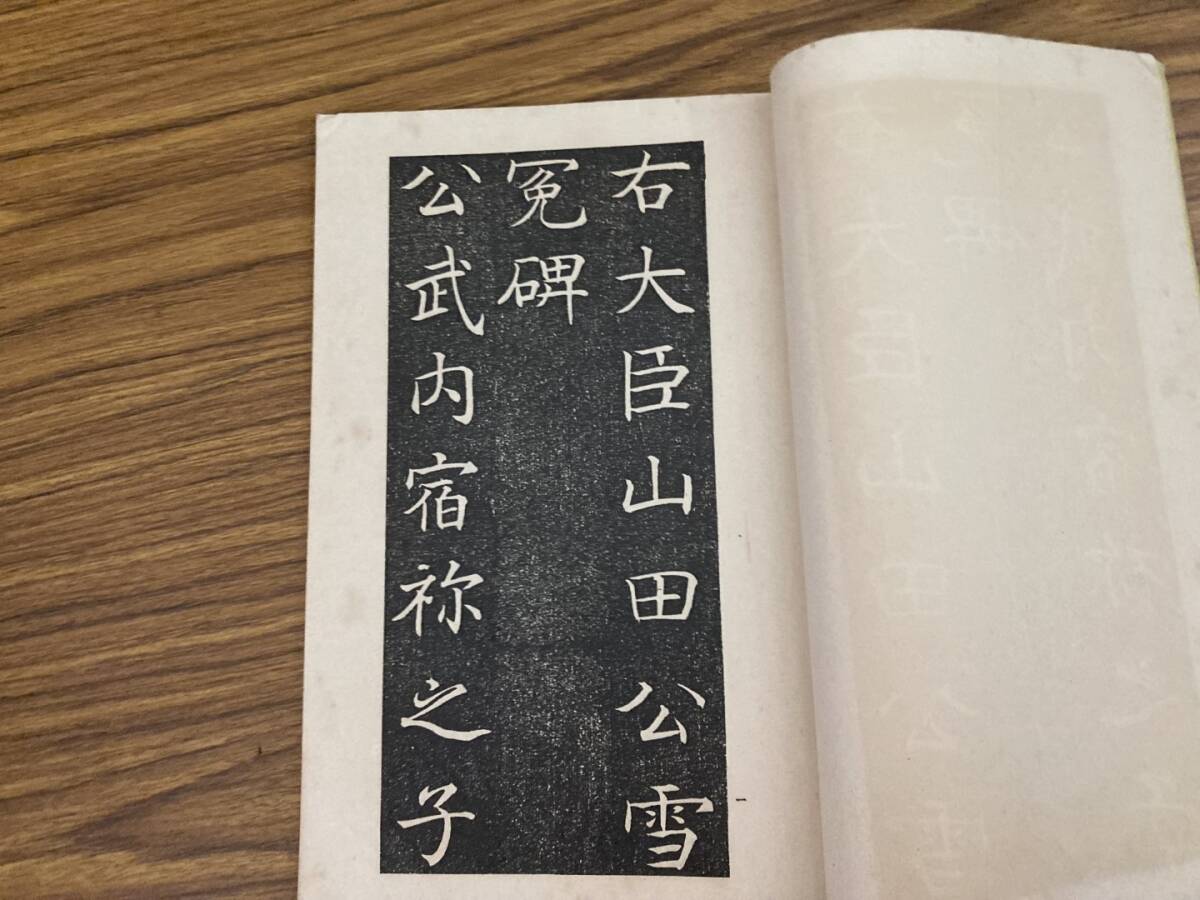 右大臣山田公雪
冤碑
公武内宿祢之子
一